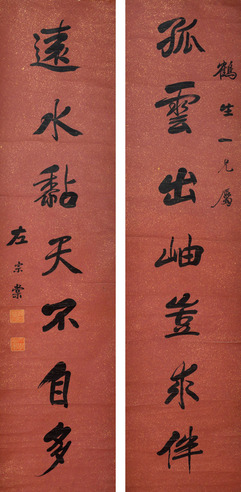 鶴生一兄屬
孤雲出岫豈求伴
遠水黏天不自多
左宗棠